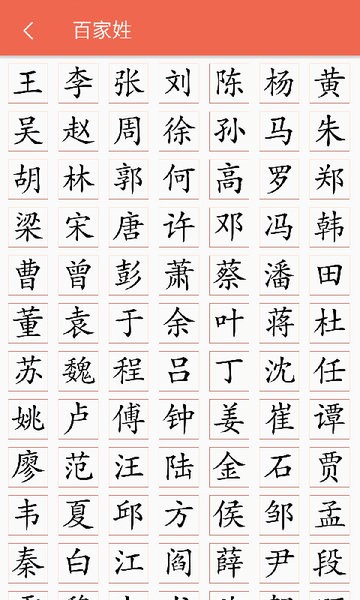 百家姓
王 李 张 刘 陈 杨 黄
吴 赵 周 徐 孙 马 朱
胡 林 郭 何 高 罗 郑
梁 宋 唐 许 邓 冯 韩
曹 曾 彭 萧 蔡 潘 田
董 袁 于 余 叶 蒋 杜
苏 魏 程 吕 丁 沈 任
姚 卢 傅 钟 姜 崔 谭
廖 范 汪 陆 金 石 贾
韦 夏 邱 方 侯 邹 孟
秦 白 江 阎 薛 尹 段